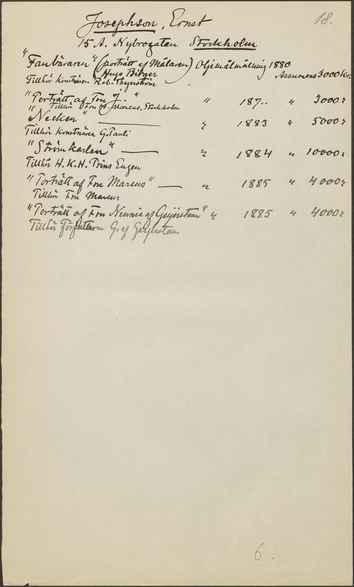 18.
Josephson, Ernst
15 A. Nybrogatan Stockholm
"Fanbäraren" (porträtt af Målaren) Oljemålning 1880
Hugo Birger Assureras 3000 Kr.
Tillhör konstnären Rob. Thegerström
"Porträtt af Fru J." " 187.. " 3000:
Tillhör Fru Stockholm
"Necken" " 1883 " 5000:
Tillhör konstnären G. Pauli
"Strömkarlen" " 1884 " 10000:
Tillhör H.K.H. Prins Eugen
"Porträtt af Fru Marcus" " 1885 " 4000:
Tillhör Fru Marcus
"Porträtt af Fru Nennie af Geijerstam" " 1885 " 4000:
Tillhör Författaren Gust af Geijerstam
6.